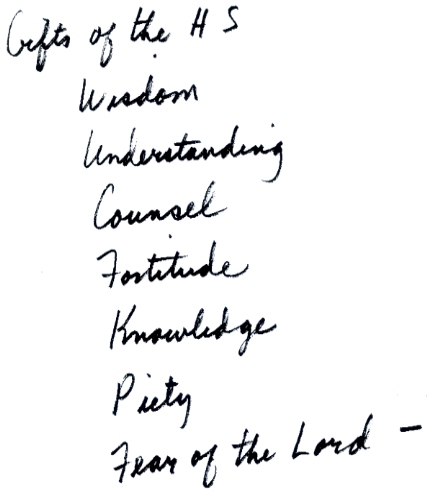 Gifts of the H S
Wisdom
Understanding
Counsel
Fortitude
Knowledge
Piety
Fear of the Lord –